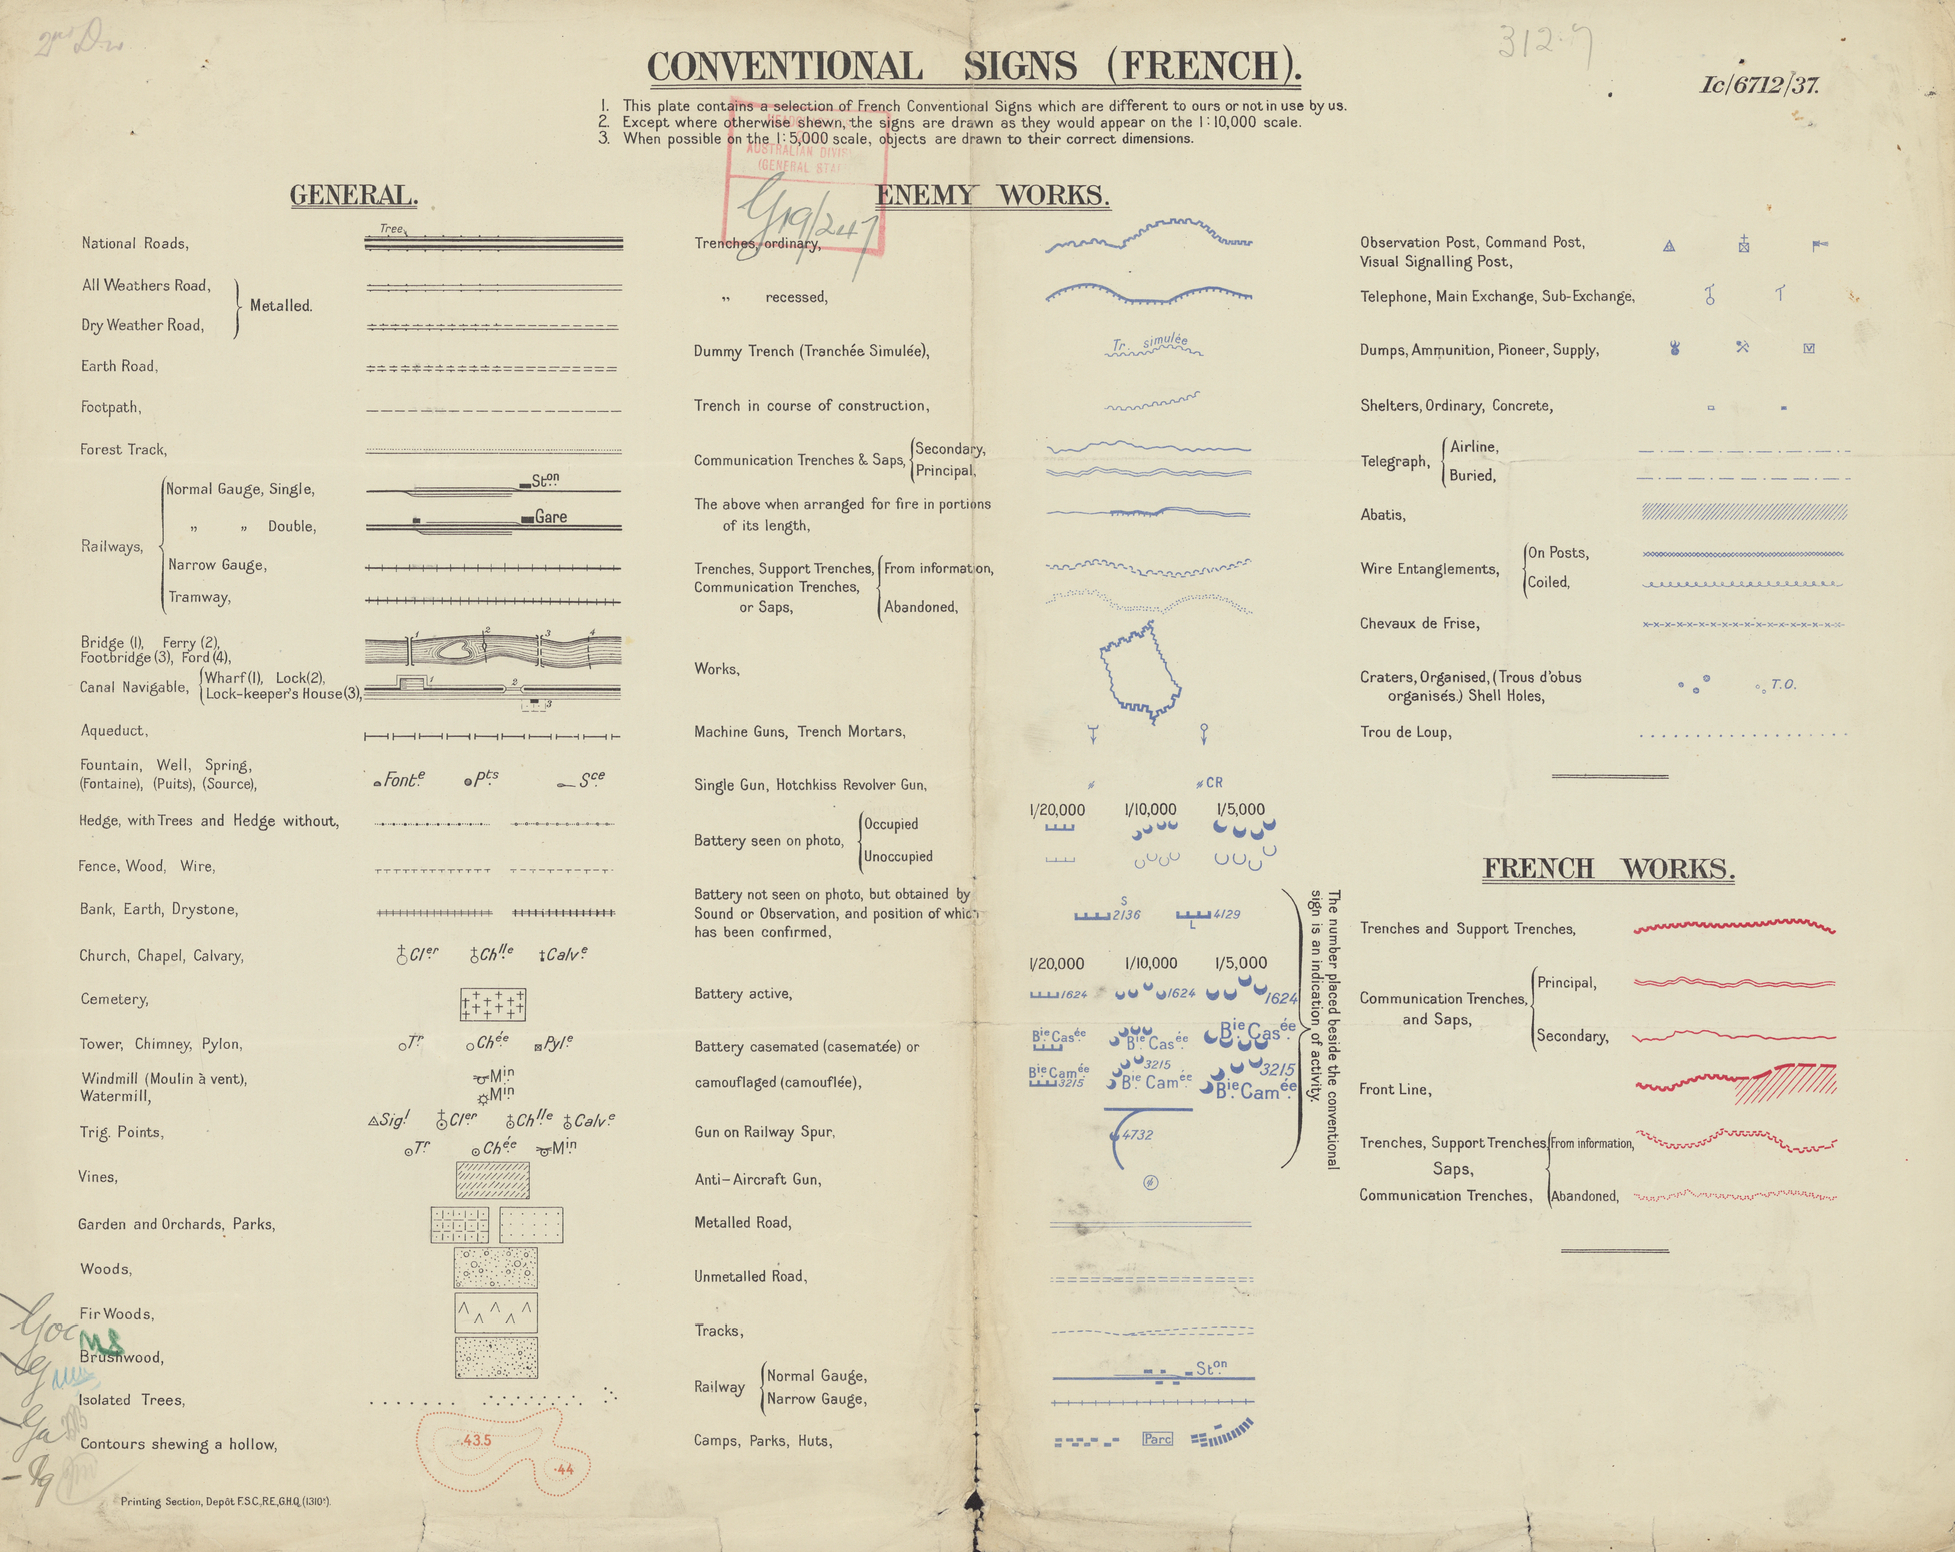 CONVENTIONAL SIGNS (FRENCH).
312.7
Ic/6712/37.
1. This plate contains a selection of French Conventional Signs which are different to ours or not in use by us.
2. Except where otherwise shewn, the signs are drawn as they would appear on the 1:10,000 scale.
3. When possible on the 1:5,000 scale, objects are drawn to their correct dimensions.
AUSTRALIAN DIVIS
(GENERAL STAF
G19/247
GENERAL.
National Roads,
Tree,
All Weathers Road,
Dry Weather Road,
Metalled.
Earth Road,
Footpath,
Forest Track,
Railways,
Normal Gauge, Single,
Ston
„ „ Double,
Gare
Narrow Gauge,
Tramway,
Bridge (1), Ferry (2),
Footbridge (3), Ford (4),
1 2 3 4
Canal Navigable,
Wharf (1), Lock (2),
Lock-keeper's House (3),
1 2
3
Aqueduct,
Fountain, Well, Spring,
(Fontaine), (Puits), (Source),
Font.e Pts Sce
Hedge, with Trees and Hedge without,
Fence, Wood, Wire,
Bank, Earth, Drystone,
Church, Chapel, Calvary,
Cl.er Ch.lle Calv.e
Cemetery,
Tower, Chimney, Pylon,
Tr Chée Pyl.e
Windmill (Moulin à vent),
Min
Watermill,
Min
Trig. Points,
Sig.l Cl.er Ch.lle Calv.e
Tr Chée Min
Vines,
Garden and Orchards, Parks,
Woods,
Fir Woods,
Brushwood,
Isolated Trees,
Contours shewing a hollow,
.43.5
.44
Printing Section, Depôt F.S.C.,R.E.,G.H.Q. (1310a).
ENEMY WORKS.
Trenches, ordinary,
„ recessed,
Dummy Trench (Tranchée Simulée),
Tr. simulée
Trench in course of construction,
Communication Trenches & Saps,
Secondary,
Principal,
The above when arranged for fire in portions
of its length,
Trenches, Support Trenches,
Communication Trenches,
or Saps,
From information,
Abandoned,
Works,
Machine Guns, Trench Mortars,
Single Gun, Hotchkiss Revolver Gun,
CR
1/20,000 1/10,000 1/5,000
Battery seen on photo,
Occupied
Unoccupied
Battery not seen on photo, but obtained by
Sound or Observation, and position of which
has been confirmed,
S
2136
4129
L
1/20,000 1/10,000 1/5,000
Battery active,
1624 1624 1624
Battery casemated (casematée) or
Bie Casée Bie Casée Bie Casée
camouflaged (camouflée),
Bie Camée Bie Camée Bie Camée
3215 3215 3215
Gun on Railway Spur,
4732
Anti-Aircraft Gun,
The number placed beside the conventional
sign is an indication of activity.
Metalled Road,
Unmetalled Road,
Tracks,
Railway
Normal Gauge,
Ston
Narrow Gauge,
Camps, Parks, Huts,
Parc
Observation Post, Command Post,
Visual Signalling Post,
Telephone, Main Exchange, Sub-Exchange,
Dumps, Ammunition, Pioneer, Supply,
Shelters, Ordinary, Concrete,
Telegraph,
Airline,
Buried,
Abatis,
Wire Entanglements,
On Posts,
Coiled,
Chevaux de Frise,
Craters, Organised, (Trous d'obus
organisés.) Shell Holes,
T.O.
Trou de Loup,
FRENCH WORKS.
Trenches and Support Trenches,
Communication Trenches,
and Saps,
Principal,
Secondary,
Front Line,
Trenches, Support Trenches
Saps,
Communication Trenches,
From information,
Abandoned,